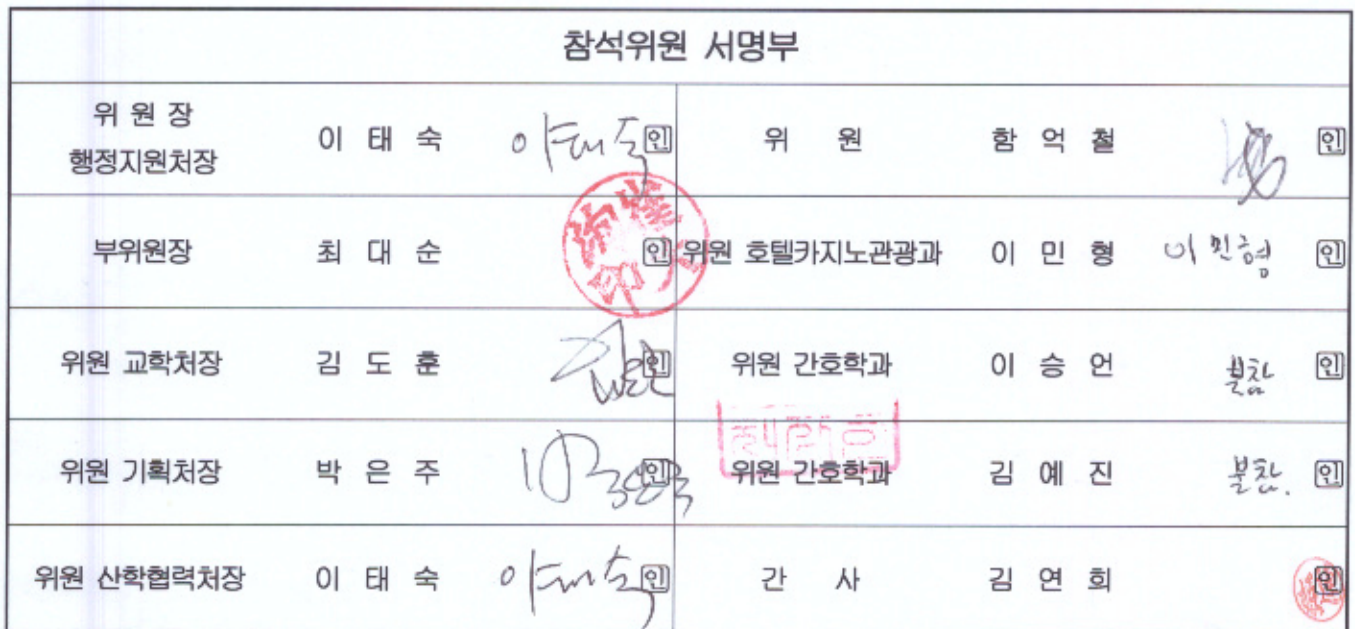 참석위원 서명부
위 원 장
행정지원처장
이 태 숙 이태숙 인
위 원 함 억 철 인
부위원장 최 대 순 인
위원 호텔카지노관광과 이 민 형 이민형 인
위원 교학처장 김 도 훈 인
위원 간호학과 이 승 언 불참 인
위원 기획처장 박 은 주 인
위원 간호학과 김 예 진 불참. 인
위원 산학협력처장 이 태 숙 이태숙 인
간 사 김 연 희 인